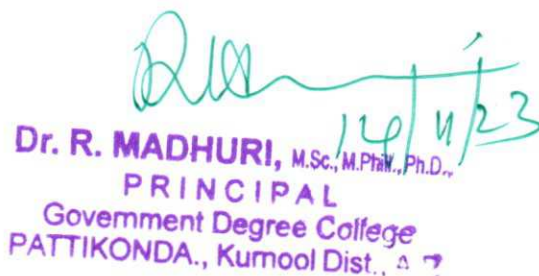 14/11/23
Dr. R. MADHURI, M.Sc., M.Phil., Ph.D.,
PRINCIPAL
Government Degree College
PATTIKONDA., Kurnool Dist.,